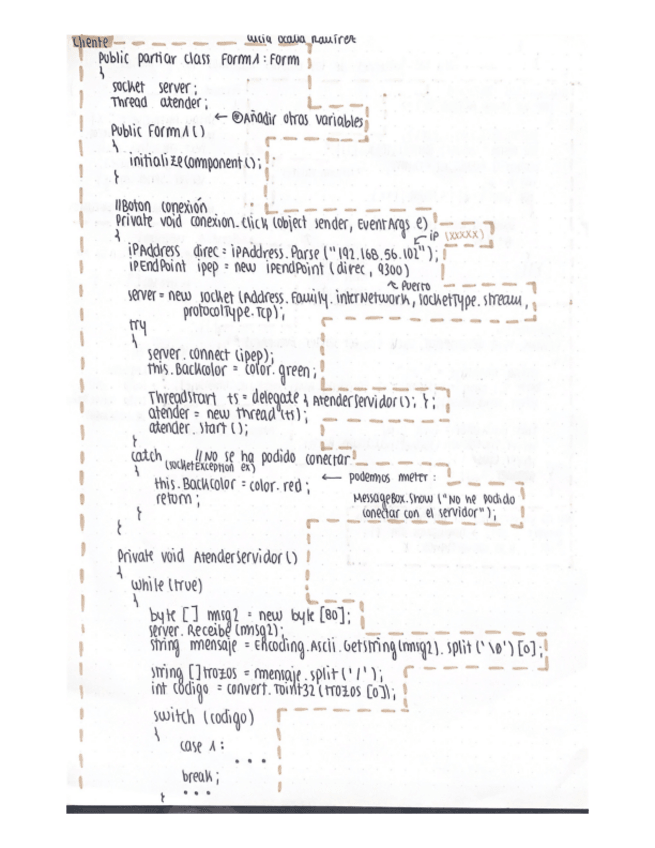 Cliente
Lucía Ocaña Ramírez
Public partiar class Form1 : Form
{
socket server;
Thread atender;
← ⊗Añadir otras variables
Public Form1()
{
initializeComponent();
}
//Boton conexión
Private void conexion_click (object sender, EventArgs e)
{
← iP (xxxxx)
iPAddress direc = iPAddress.Parse ("192.168.56.102");
iPEndPoint ipep = new ipEndPoint (direc, 9300)
↖ Puerto
server = new socket (Address.Family.interNetwork, socketType.stream,
protocolType.Tcp);
try
{
server.connect (ipep);
this.Backcolor = color.green;
ThreadStart ts = delegate { AtenderServidor(); };
atender = new thread (ts);
atender.start ();
}
catch //No se ha podido conectar
(socketException ex)
{
← podemos meter:
this.Backcolor = color.red;
return;
MessageBox.Show ("No he podido
conectar con el servidor");
}
}
Private void AtenderServidor ()
{
while (true)
{
byte [] msg2 = new byte [80];
server.Receibe (msg2);
string mensaje = Encoding.Ascii.GetString (msg2).split ('\0') [0];
string [] trozos = mensaje.split ('/');
int codigo = convert.ToInt32 (trozos [0]);
switch (codigo)
{
case 1:
...
break;
...
}